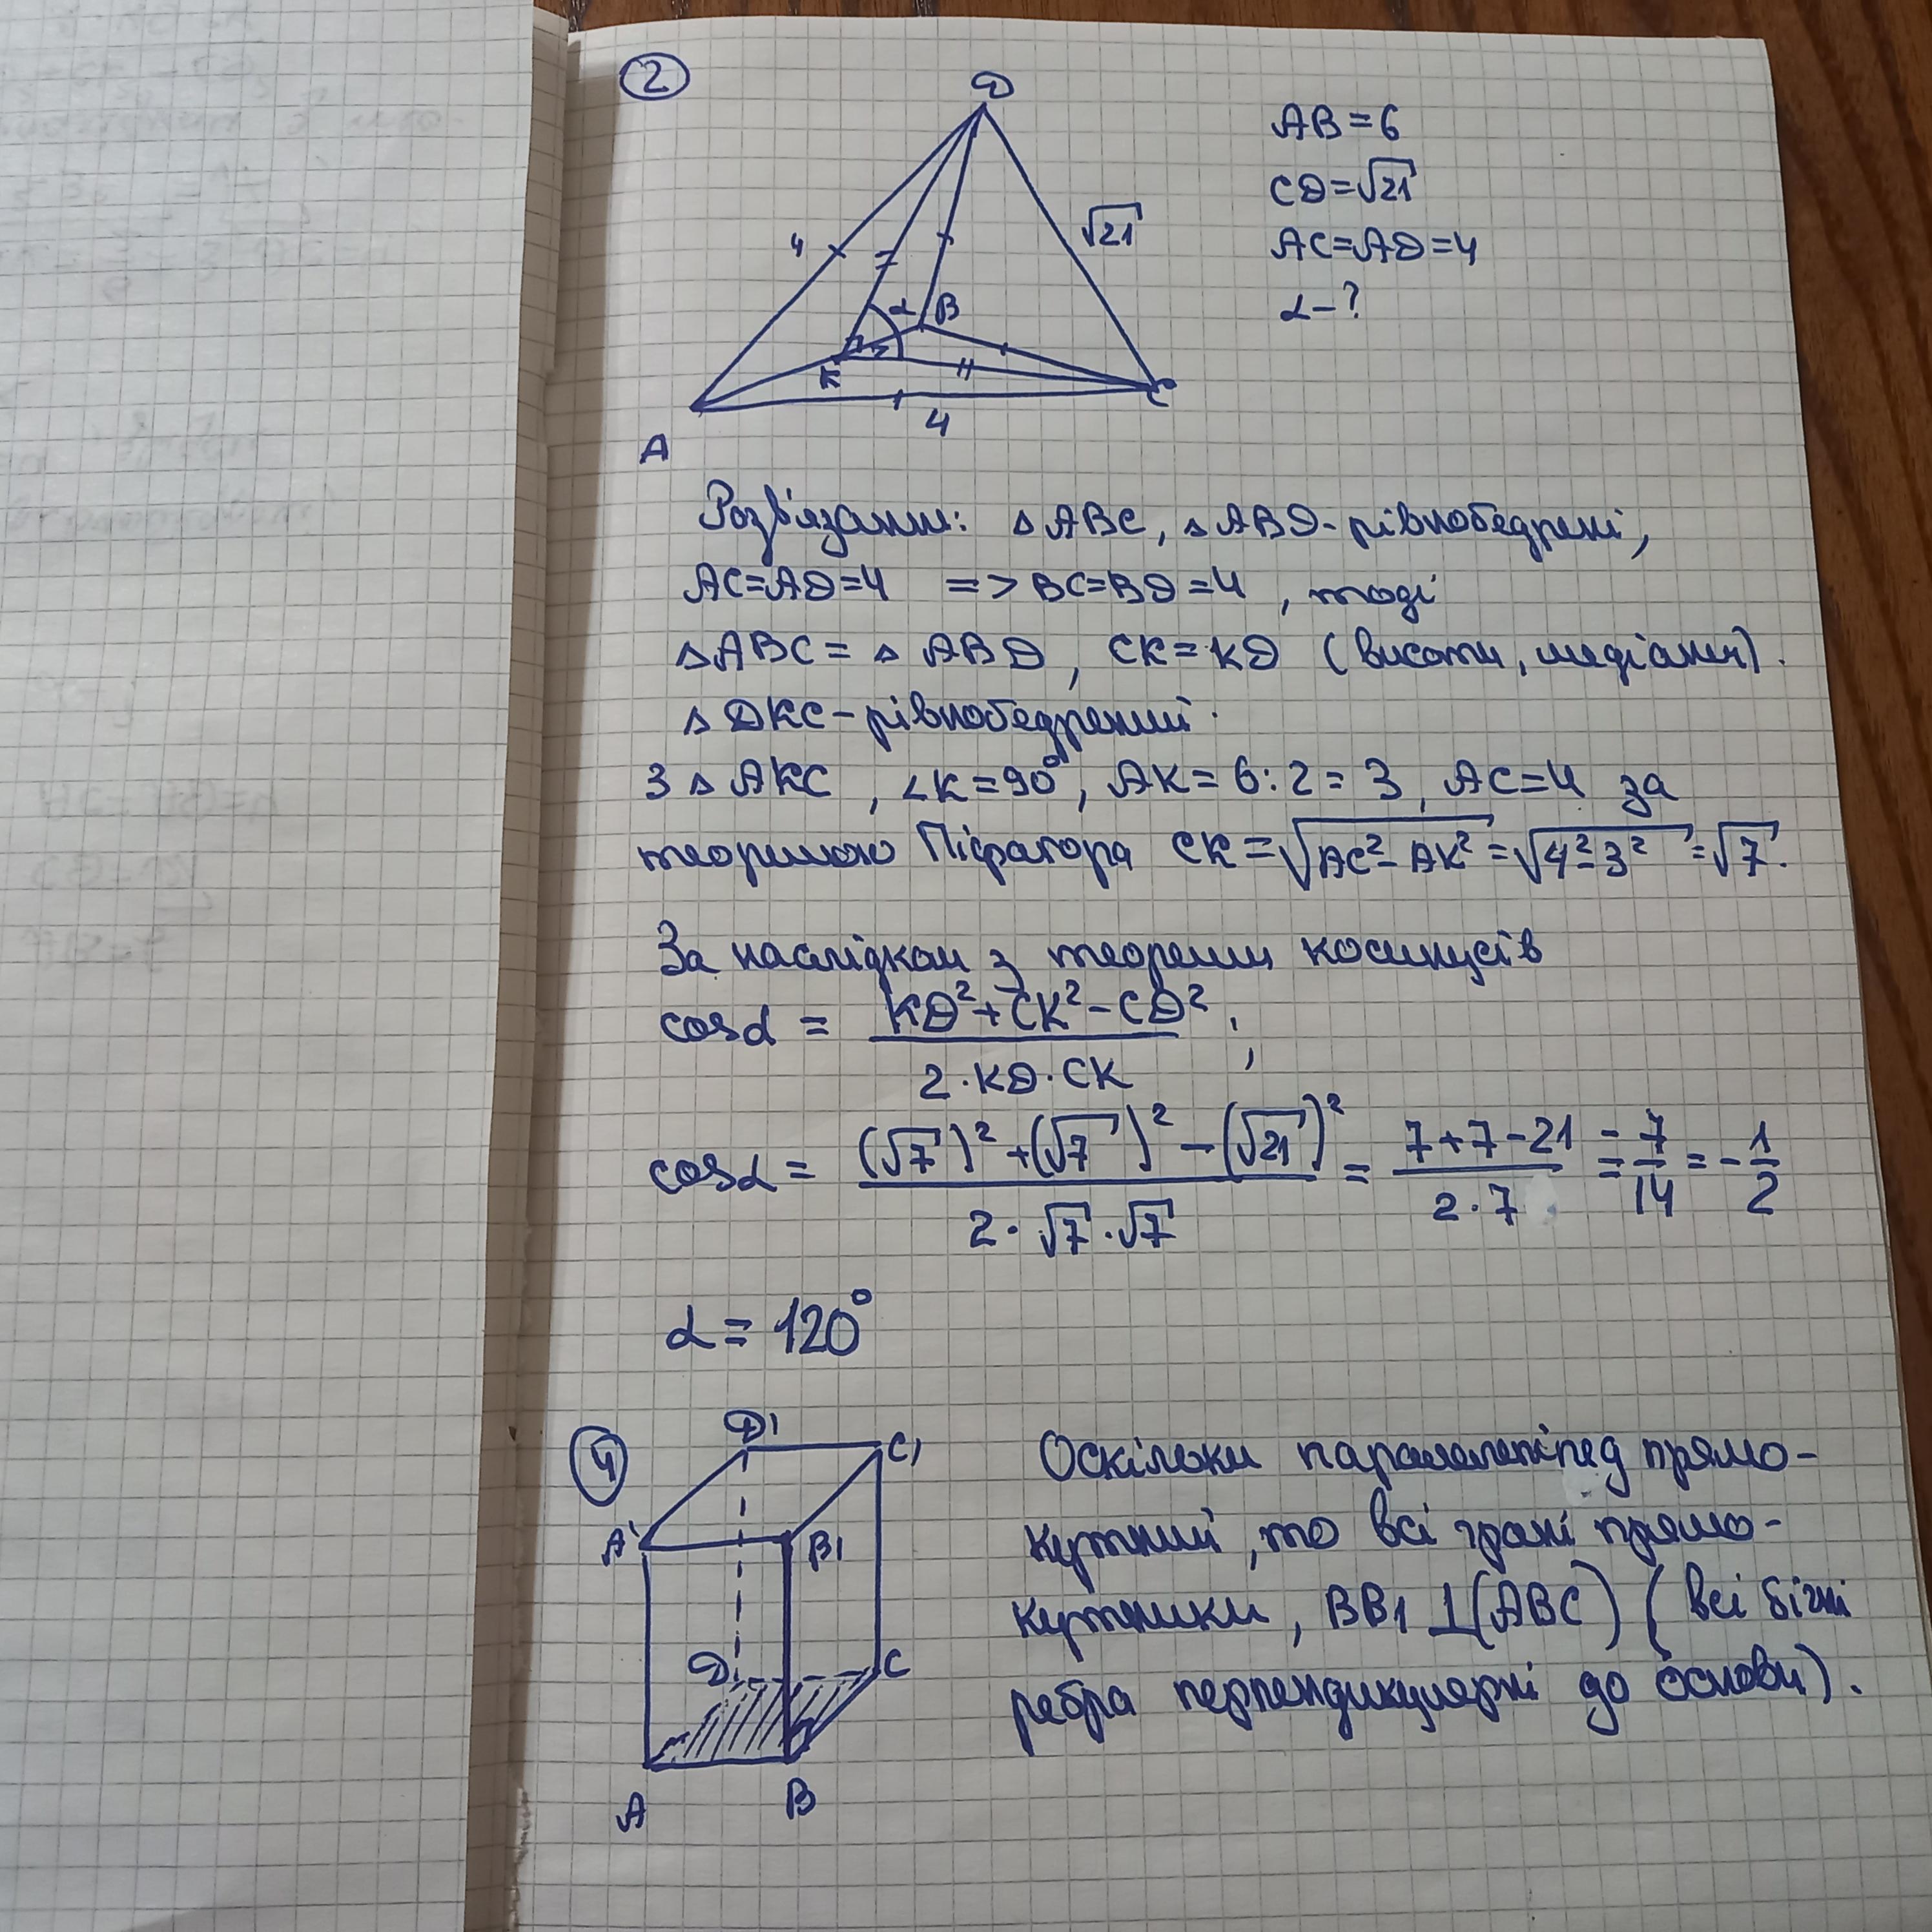 2
D
AB=6
CD=√21
4
√21
AC=AD=4
α
B
α-?
K
C
4
A
Розв'язання: △ABC, △ABD-рівнобедрені,
AC=AD=4 => BC=BD=4, тоді
△ABC = △ABD, CK=KD (висоти, медіани).
△DKC-рівнобедрений.
З △AKC, ∠K=90°, AK=6:2=3, AC=4 за
теоремою Піфагора CK=√AC²-AK²=√4²-3²=√7.
За наслідком з теореми косинусів
cosα = KD²+CK²-CD² / 2·KD·CK;
cosα = (√7)²+(√7)²-(√21)² / 2·√7·√7 = 7+7-21 / 2·7 = -7/14 = -1/2
α = 120°
4
D1
C1
Оскільки паралелепіпед прямо-
A1
B1
кутний, то всі грані прямо-
кутники, BB1⊥(ABC) (всі бічні
D
C
ребра перпендикулярні до основи).
A
B